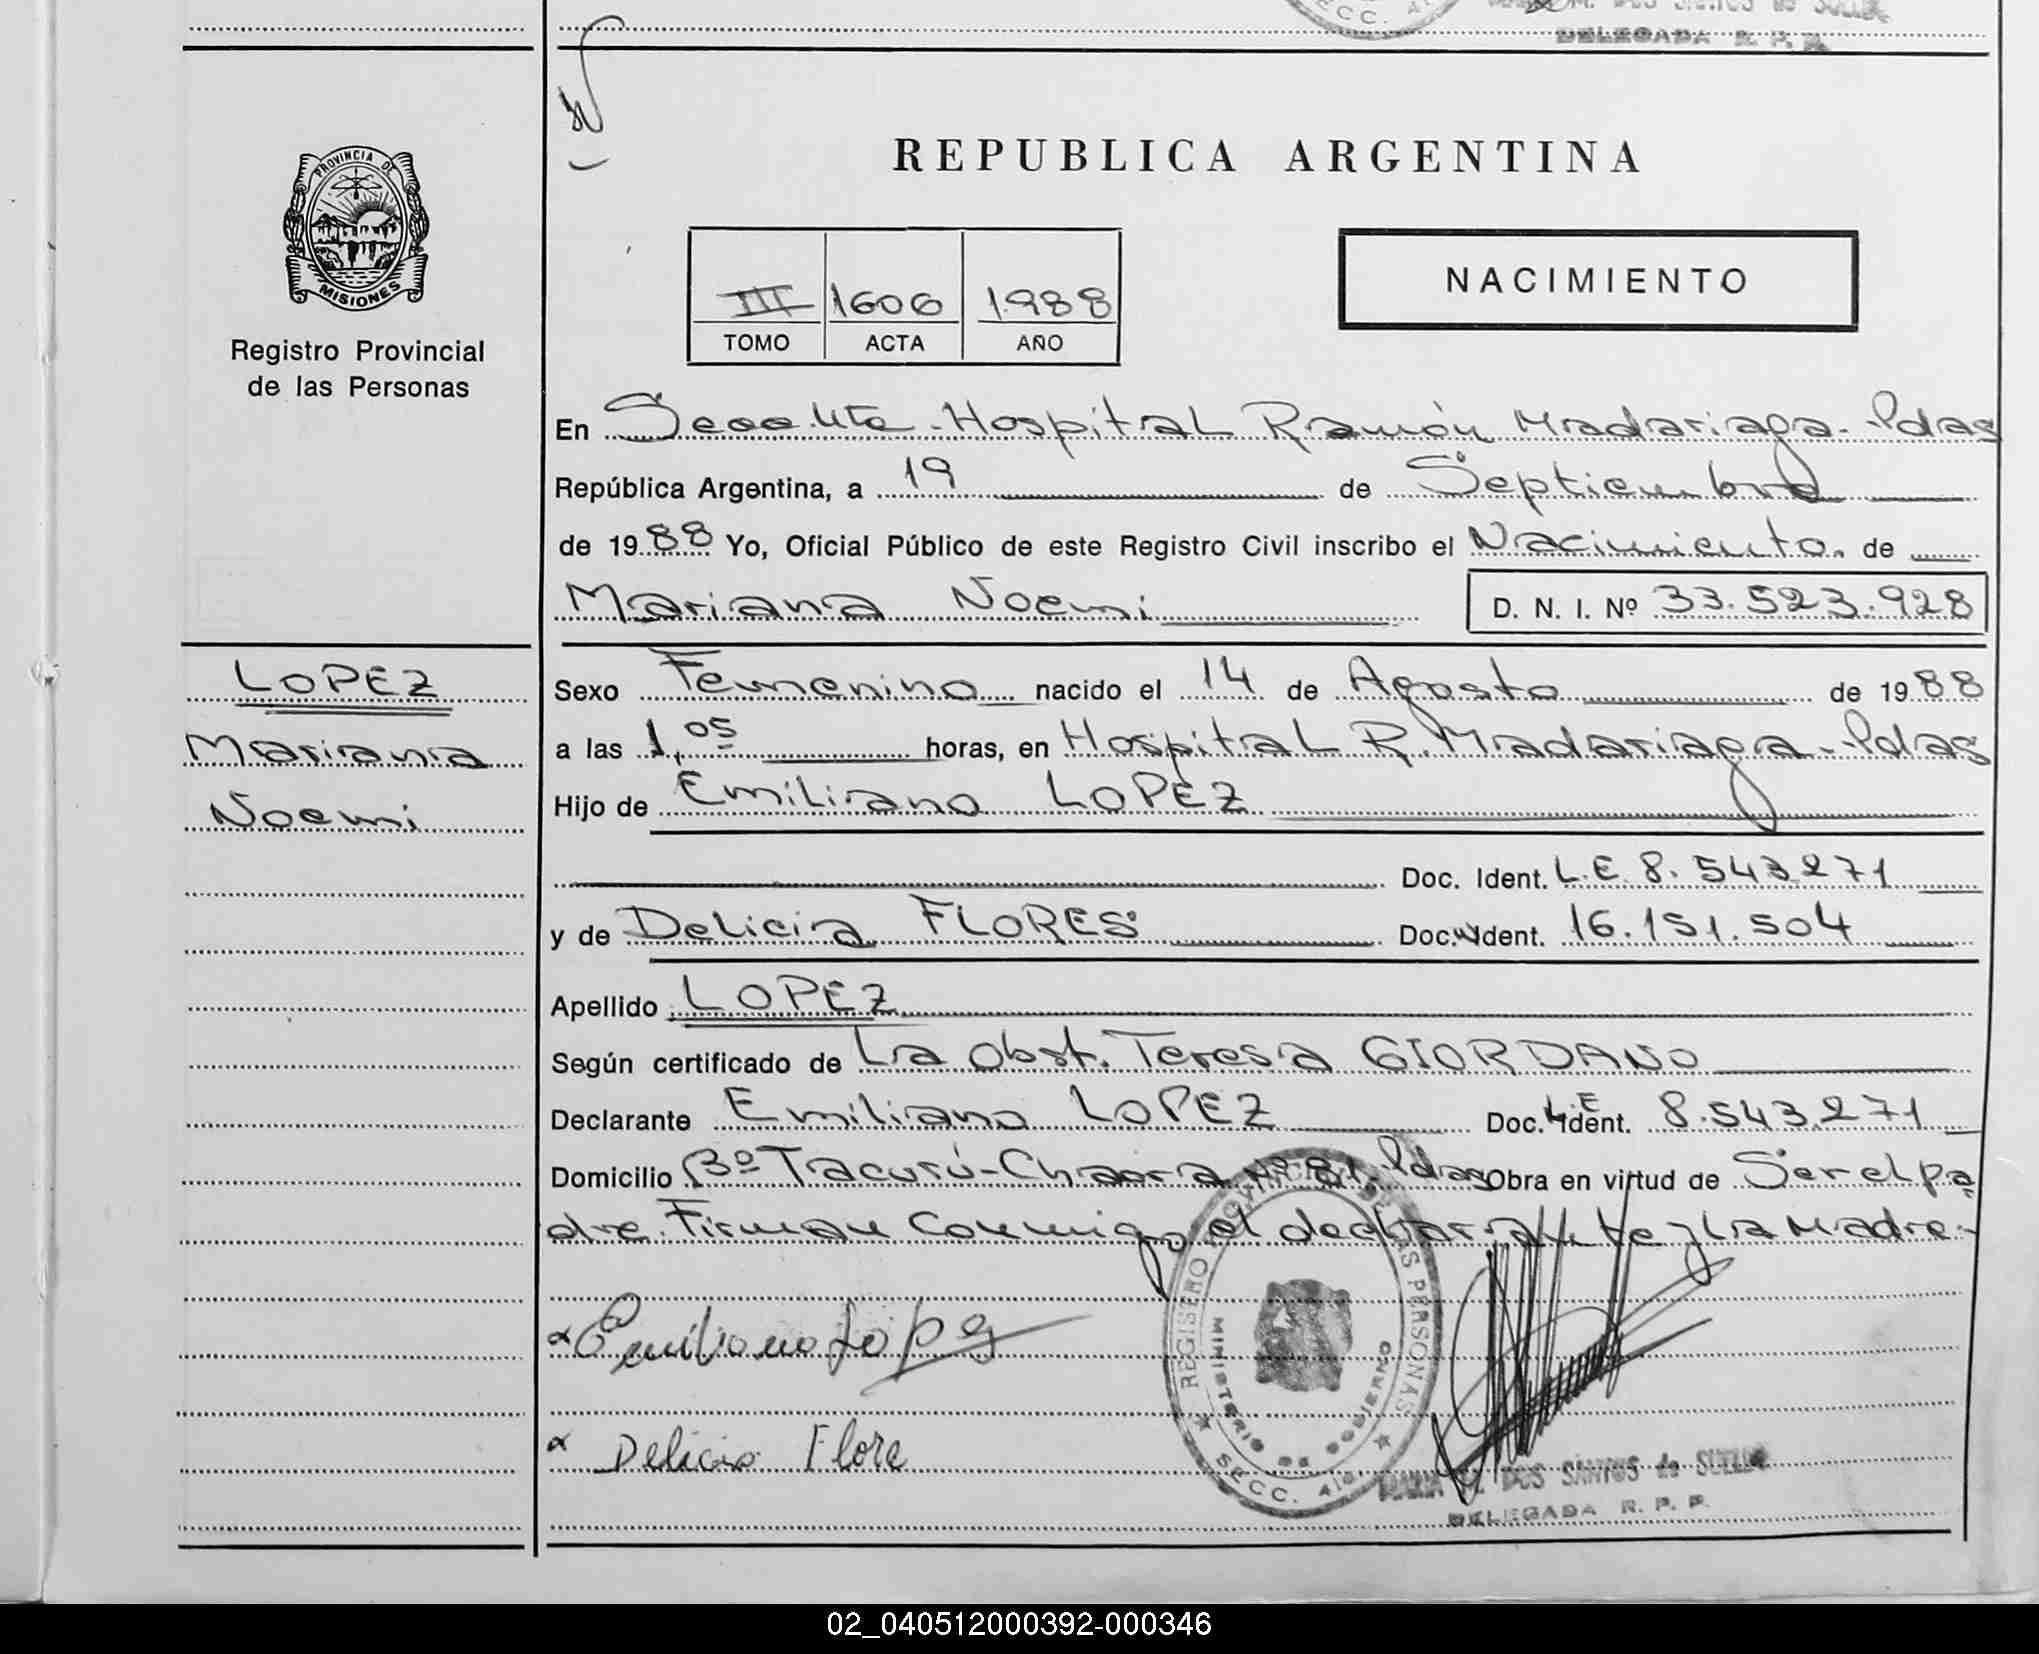 DELEGADA R. P. P.
REPUBLICA ARGENTINA
PROVINCIA DE
MISIONES
Registro Provincial
de las Personas
III 1606 1.988
TOMO ACTA AÑO
NACIMIENTO
En Hospital Ramón Madariaga - Pdas
República Argentina, a 19 de Septiembre
de 1988 Yo, Oficial Público de este Registro Civil inscribo el Nacimiento. de
Mariana Noemi D. N. I. Nº 33.523.928
LOPEZ
Mariana
Noemi
Sexo Femenino nacido el 14 de Agosto de 1988
a las 1,05 horas, en Hospital R. Madariaga - Pdas
Hijo de Emiliano LOPEZ
Doc. Ident. L.E. 8.543.271
y de Delicia FLORES Doc. Ident. 16.151.504
Apellido LOPEZ
Según certificado de La Obst. Teresa GIORDANO
Declarante Emiliano LOPEZ Doc. L.E Ident. 8.543.271
Domicilio Bº Tacurú - Chacra Nº 81. Pdas Obra en virtud de Ser el pa
dre. Firman Conmigo el declarante y La Madre.-
Emiliano Lopez
Delicia Flore
REGISTRO PROVINCIAL DE LAS PERSONAS
MINISTERIO DE GOBIERNO
SECC.
DOS SANTOS de SUELDO
DELEGADA R. P. P.
02_040512000392-000346